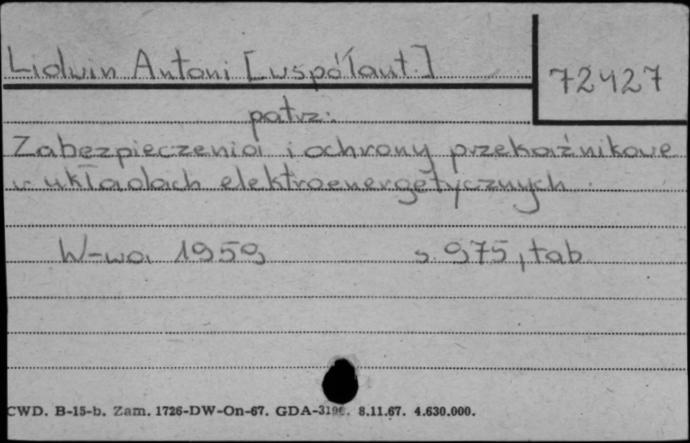 Lidwin Antoni [współaut.]
72427
patrz:
Zabezpieczenia i ochrony przekaźnikowe
w układach elektroenergetycznych
W-wa 1959 s. 975, tab
CWD. B-15-b. Zam. 1726-DW-On-67. GDA- 8.11.67. 4.630.000.